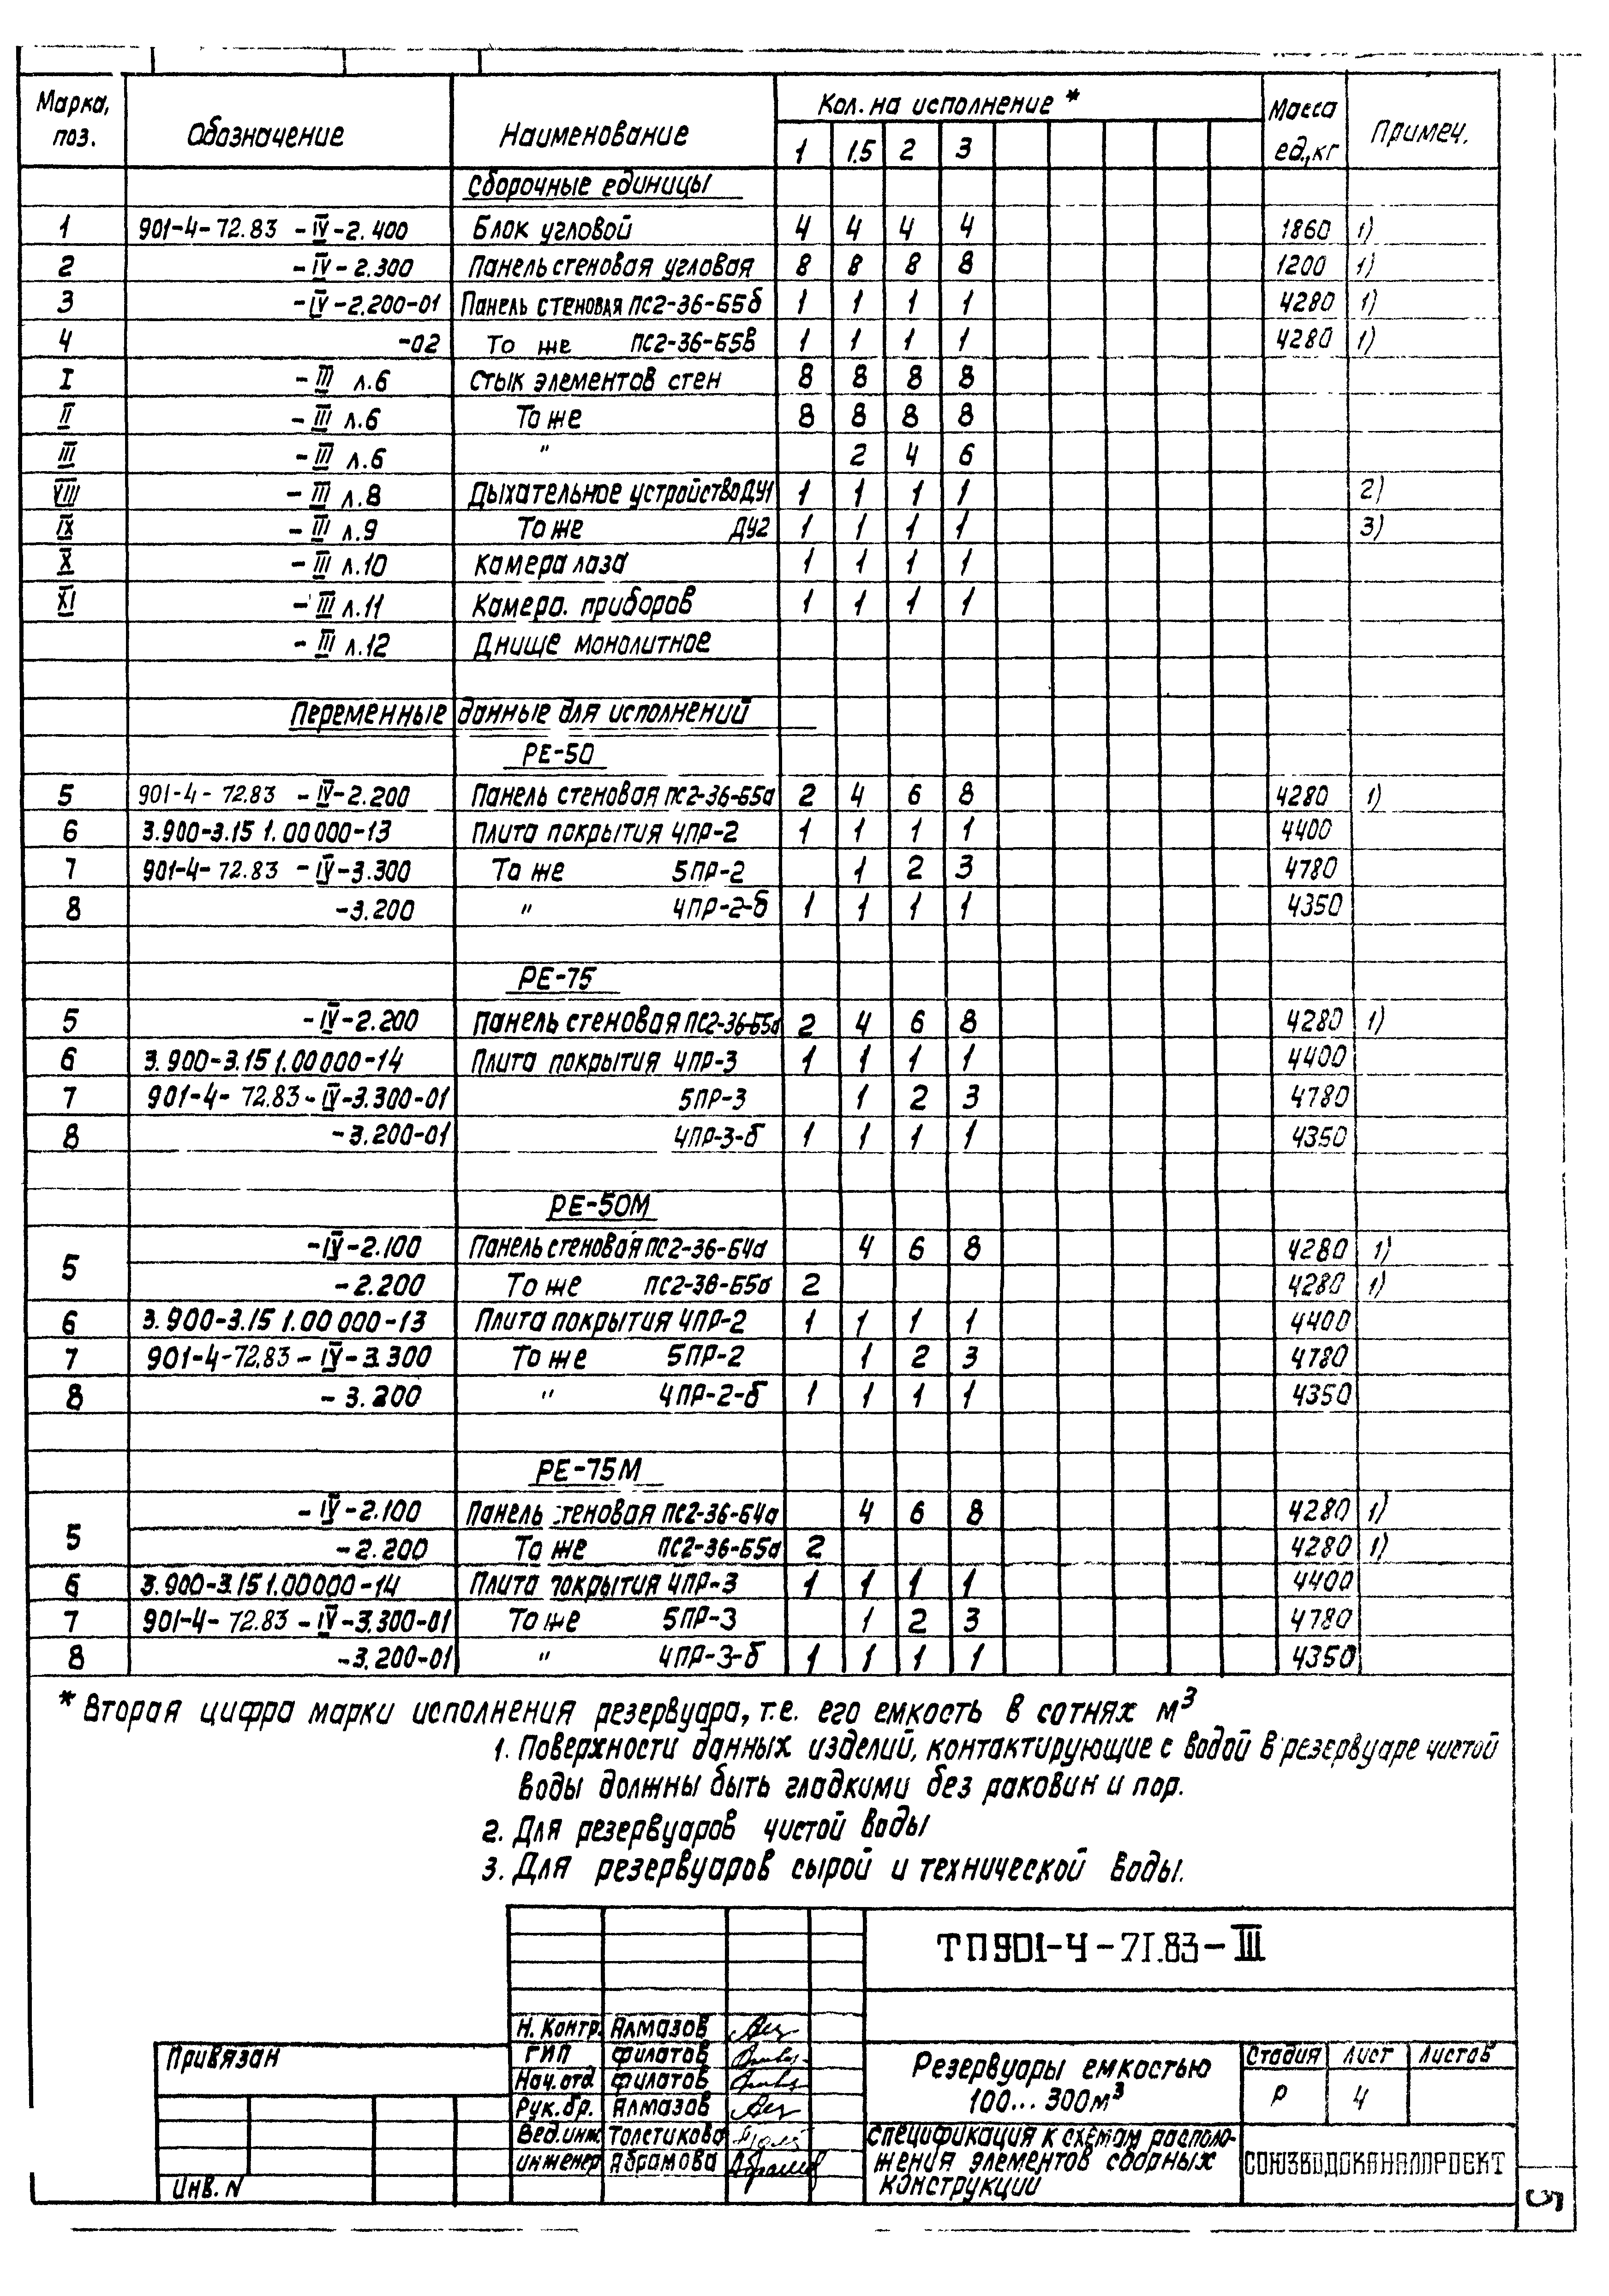 Марка, поз. Обозначение Наименование Кол. на исполнение * Масса ед., кг Примеч.
1 1.5 2 3
Сборочные единицы
1 901-4-72.83 -IV-2.400 Блок угловой 4 4 4 4 1860 1)
2 -IV-2.300 Панель стеновая угловая 8 8 8 8 1200 1)
3 -IV-2.200-01 Панель стеновая ПС2-36-Б5б 1 1 1 1 4280 1)
4 -02 То же ПС2-36-Б5в 1 1 1 1 4280 1)
I -III л.6 Стык элементов стен 8 8 8 8
II -III л.6 То же 8 8 8 8
III -III л.6 " 2 4 6
VIII -III л.8 Дыхательное устройство ДУ1 1 1 1 1 2)
IX -III л.9 То же ДУ2 1 1 1 1 3)
X -III л.10 Камера лаза 1 1 1 1
XI -III л.11 Камера приборов 1 1 1 1
-III л.12 Днище монолитное
Переменные данные для исполнений
РЕ-50
5 901-4-72.83 -IV-2.200 Панель стеновая ПС2-36-Б5а 2 4 6 8 4280 1)
6 3.900-3.15 1.00 000-13 Плита покрытия 4ПР-2 1 1 1 1 4400
7 901-4-72.83 -IV-3.300 То же 5ПР-2 1 2 3 4780
8 -3.200 " 4ПР-2-б 1 1 1 1 4350
РЕ-75
5 -IV-2.200 Панель стеновая ПС2-36-Б5а 2 4 6 8 4280 1)
6 3.900-3.15 1.00 000-14 Плита покрытия 4ПР-3 1 1 1 1 4400
7 901-4-72.83-IV-3.300-01 5ПР-3 1 2 3 4780
8 -3.200-01 4ПР-3-б 1 1 1 1 4350
РЕ-50М
5 -IV-2.100 Панель стеновая ПС2-36-Б4а 4 6 8 4280 1)
-2.200 То же ПС2-36-Б5а 2 4280 1)
6 3.900-3.15 1.00 000-13 Плита покрытия 4ПР-2 1 1 1 1 4400
7 901-4-72.83-IV-3.300 То же 5ПР-2 1 2 3 4780
8 -3.200 " 4ПР-2-б 1 1 1 1 4350
РЕ-75М
5 -IV-2.100 Панель стеновая ПС2-36-Б4а 4 6 8 4280 1)
-2.200 То же ПС2-36-Б5а 2 4280 1)
6 3.900-3.15 1.00 000-14 Плита покрытия 4ПР-3 1 1 1 1 4400
7 901-4-72.83-IV-3.300-01 То же 5ПР-3 1 2 3 4780
8 -3.200-01 " 4ПР-3-б 1 1 1 1 4350
* Вторая цифра марки исполнения резервуара, т.е. его емкость в сотнях м³
1. Поверхности данных изделий, контактирующие с водой в резервуаре чистой
воды должны быть гладкими без раковин и пор.
2. Для резервуаров чистой воды
3. Для резервуаров сырой и технической воды.
ТП901-4-71.83-III
Н. Контр. Алмазов
ГИП Филатов
Нач. отд Филатов
Рук. бр. Алмазов
Вед. инж. Толстикова
инженер Абрамова
Привязан
Инв. N
Резервуары емкостью
100...300м³
Стадия Лист Листов
Р 4
Спецификация к схемам располо-
жения элементов сборных
конструкции
СОЮЗВОДОКАНАЛПРОЕКТ
5